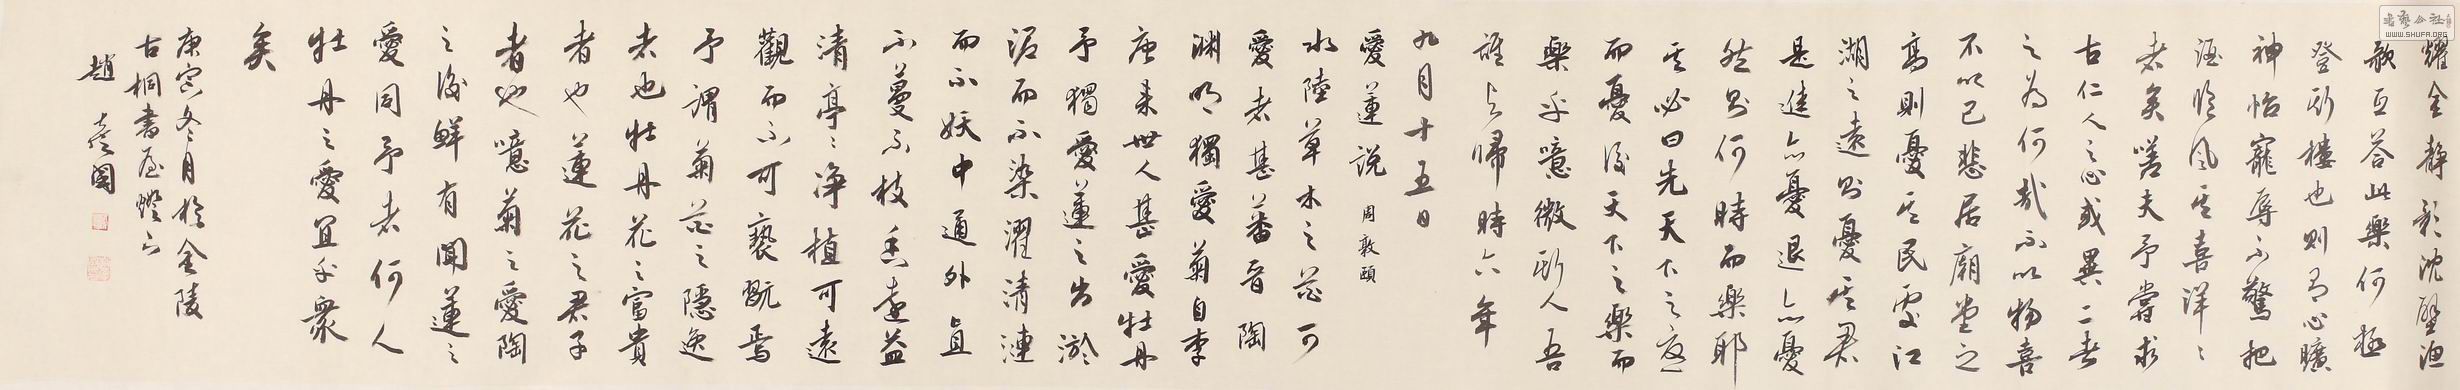 耀金靜影沈璧漁
歌互荅此樂何極
登斯樓也則有心曠
神怡寵辱不驚把
酒臨風其喜洋〻
者矣嗟夫予嘗求
古仁人之心或異二者
之為何哉不以物喜
不以己悲居廟堂之
高則憂其民處江
湖之遠則憂其君
是進亦憂退亦憂
然則何時而樂耶
其必曰先天下之憂
而憂後天下之樂而
樂乎噫微斯人吾
誰與歸時六年
九月十五日
愛蓮説 周敦頤
水陸草木之花可
愛者甚蕃晉陶
淵明獨愛菊自李
唐来世人甚愛牡丹
予獨愛蓮之出淤
泥而不染濯清漣
而不妖中通外直
不蔓不枝香遠益
清亭〻淨植可遠
觀而不可褻翫焉
予謂菊花之隱逸
者也牡丹花之富貴
者也蓮花之君子
者也噫菊之愛陶
之後鮮有聞蓮之
愛同予者何人
牡丹之愛宜乎衆
矣
庚寅冬月於金陵
古桐書屋燈下
趙彥國
書藝公社
WWW.SHUFA.ORG